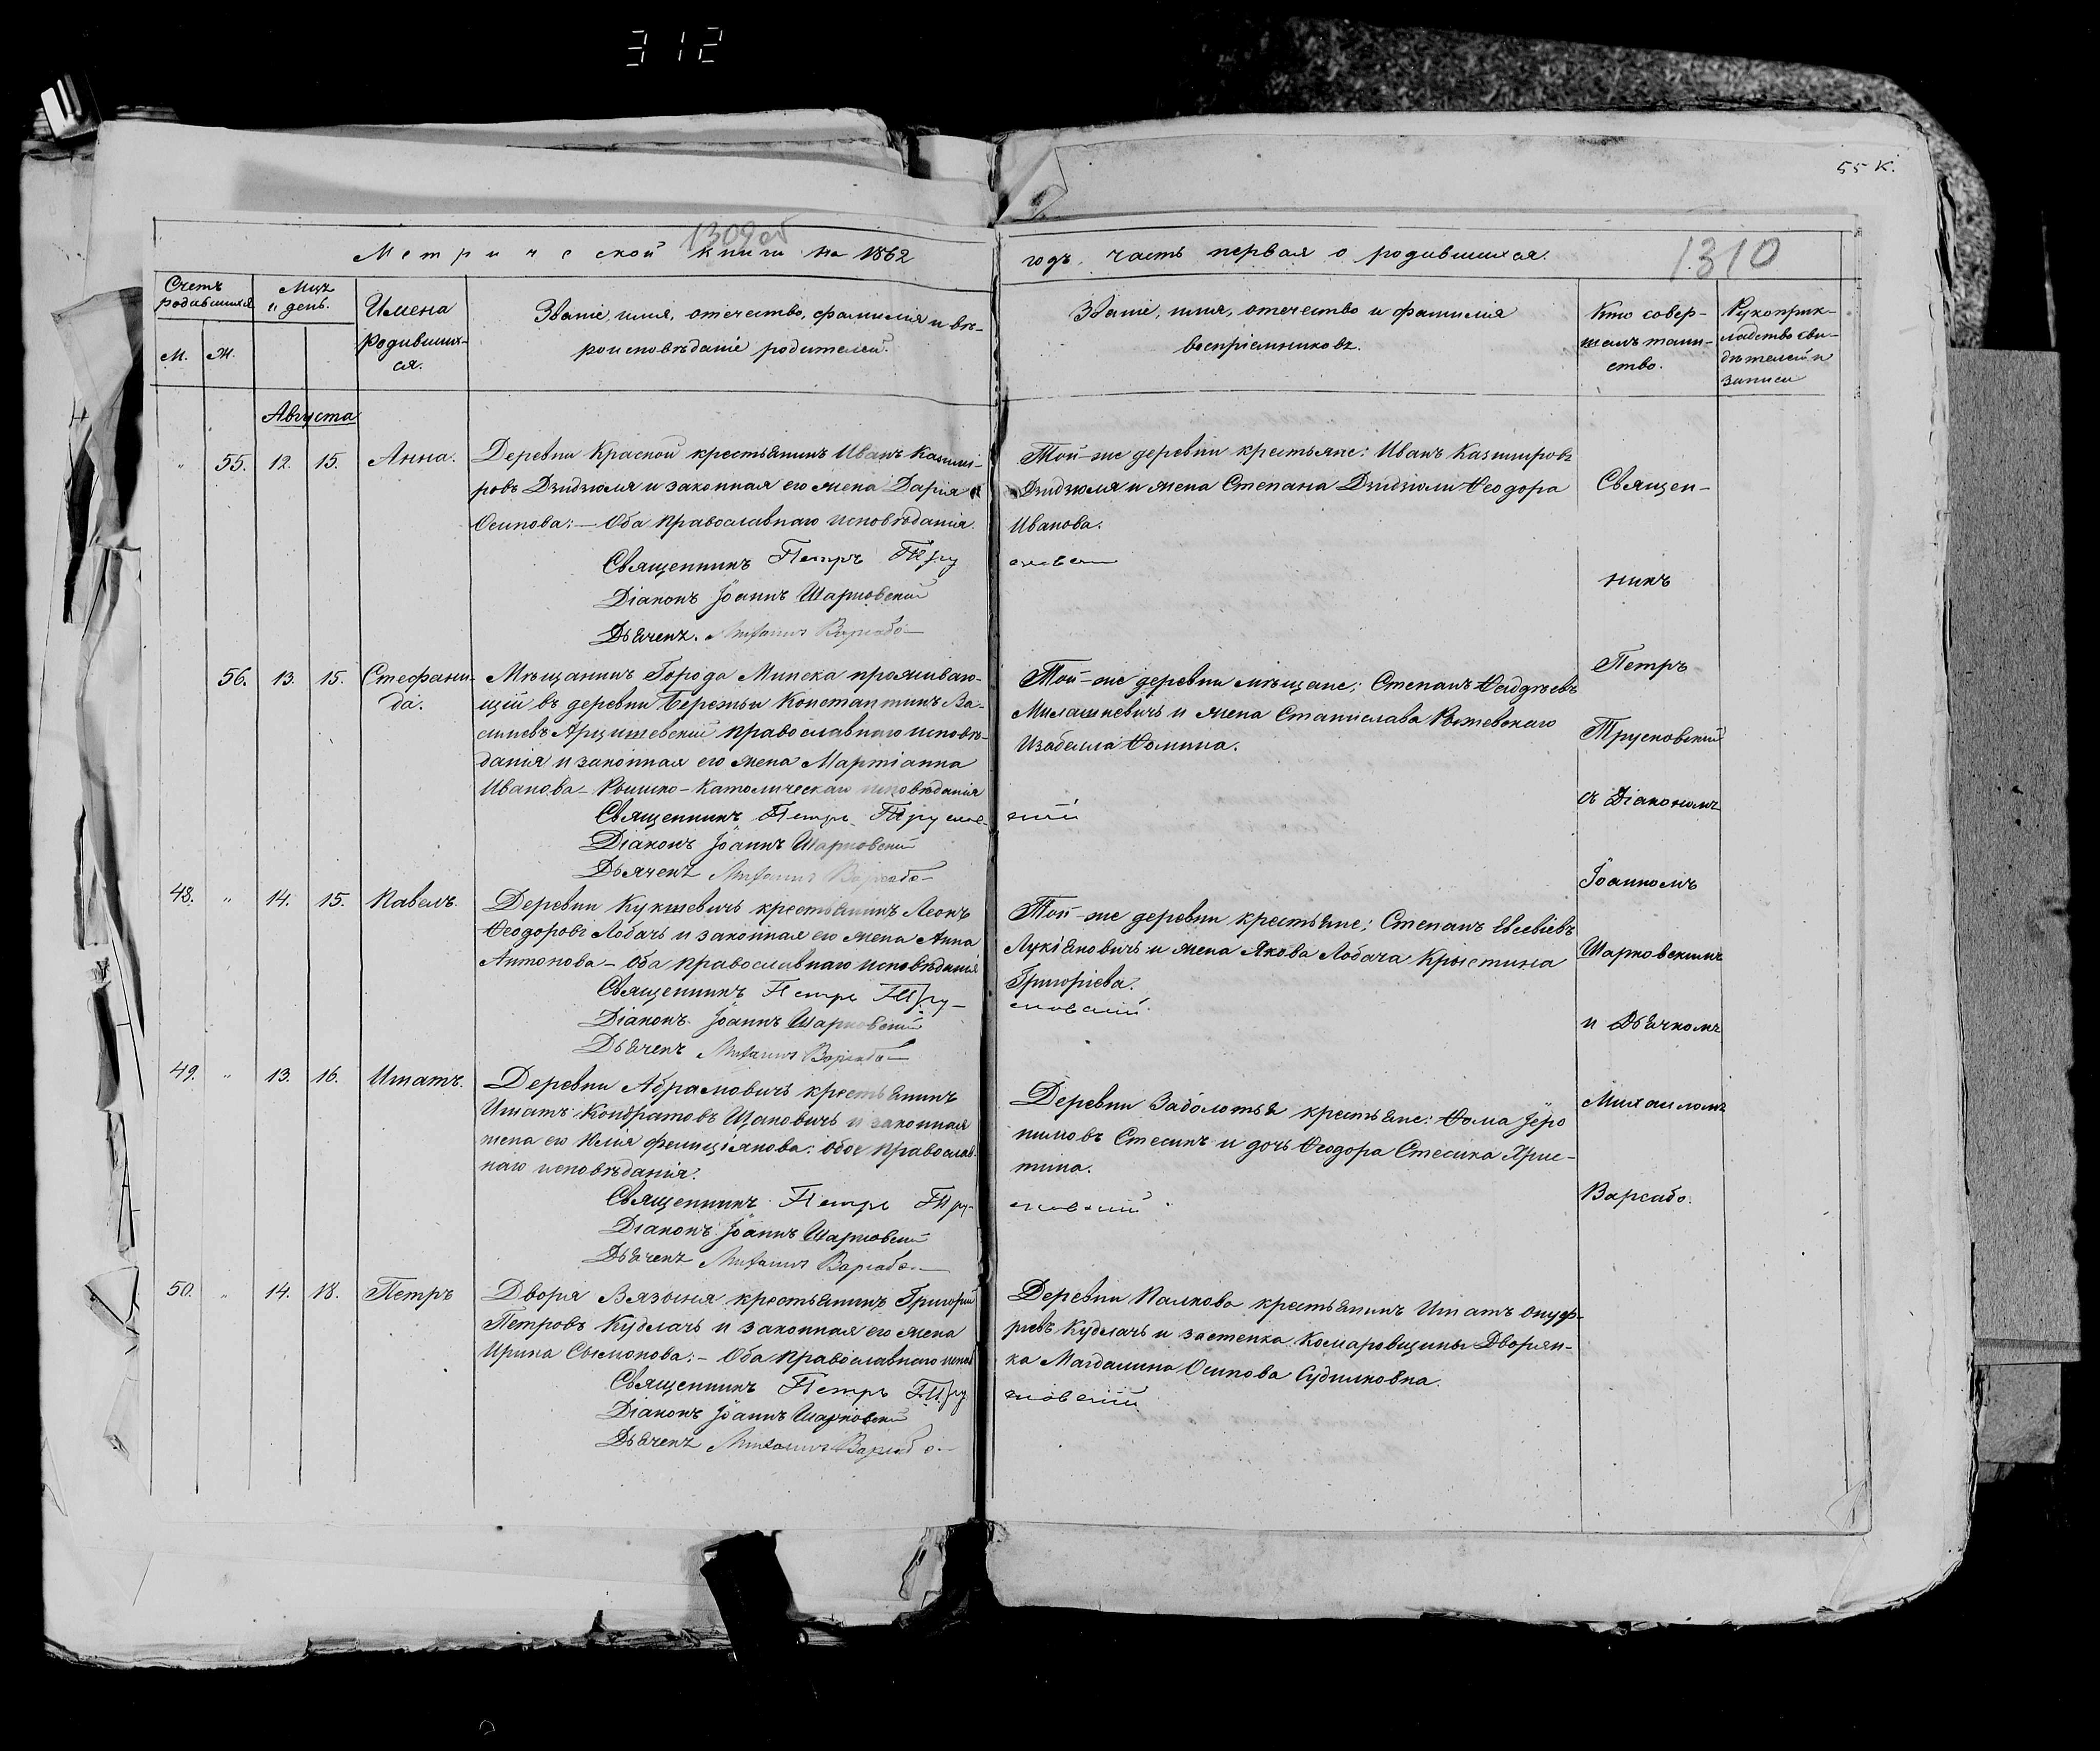 312
55 К.
1309 об
Метрической книги на 1862
годъ, часть первая о родившихся.
1310
Счетъ родившихся
Мцъ и день.
Имена родившихся.
Званіе, имя, отечество, фамилія и вѣ-
роисповѣданіе родителей.
Званіе, имя, отечество и фамилія
воспріемниковъ.
Кто совер-
шалъ таин-
ство.
Рукоприк-
ладство сви-
дѣтелей и
записи
М. Ж.
Августа
" 55. 12. 15. Анна.
Деревни Красной крестьянинъ Иванъ Казими-
ровъ Дзидзюля и законная его жена Дарія
Осипова: — Оба православнаго исповѣданія.
Священникъ Петръ Тру
Діаконъ Іоаннъ Шарковскій
Дьячекъ. Михаилъ Варсабо
Той-же деревни крестьяне: Иванъ Казимировъ
Дзидзюля и жена Степана Дзидзюли Ѳеодора
Иванова.
56. 13. 15. Стефани-
да.
Мѣщанинъ Города Минска прожива-
щій въ деревни Бересьи Константинъ Ва-
силіевъ Арцишевскій православнаго исповѣ-
данія и законная его жена Мартіанна
Иванова — Римско-Католическаго исповѣданія
Священникъ Петръ Труско-
Діаконъ Іоаннъ Шарковскій
Дьячекъ Михаилъ Варсабо
Той-же деревни мѣщане: Степанъ
Милашкевичъ и жена Станислава
Изабелла Ѳомина.
кій
48. " 14. 15. Павелъ.
Деревни Кукшевичь крестьянинъ Леонъ
Ѳеодоровъ Лобачъ и законная его жена Анна
Антонова — Оба православнаго исповѣданія
Священникъ Петръ Тру-
Діаконъ Іоаннъ Шарковскій
Дьячекъ Михаилъ Варсабо
Той-же деревни крестьяне: Степанъ Евсевіевъ
Лукіяновичъ и жена Якова Лобача Крыстина
Григоріева.
сковскій
49. " 13. 16. Игнатъ.
Деревни Абрамовичъ крестьянинъ
Игнатъ Кондратовъ Щановичъ и законная
жена его Юлія Фелиціянова: обое Православ-
наго исповѣданія.
Священникъ Петръ Тру-
Діаконъ Іоаннъ Шарковскій
Дьячекъ Михаилъ Варсабо.
Деревни Заболотья крестьяне: Ѳома Іеро
нимовъ Стесикъ и дочь Ѳеодора Стесика Хрис-
тина.
сковскій
50. " 14. 18. Петръ
Двора Вязыня крестьянинъ Григорій
Петровъ Кудлачъ и законная его жена
Ирина Сымонова: — Оба Православнаго испов
Священникъ Петръ Тру
Діаконъ Іоаннъ Шарковскій
Дьячекъ Михаилъ Варсабо.
Деревни Палкова крестьянинъ Игнатъ Онуф-
ріевъ Кудлачъ и застенка Комаровщины Дворян-
ка Магдалина Осипова Судниковна.
сковскій
Священ-
никъ
Петръ
Трусковскій
съ Діакономъ
Іоанномъ
Шарковскимъ
и Дьячкомъ
Михаиломъ
Варсабо.